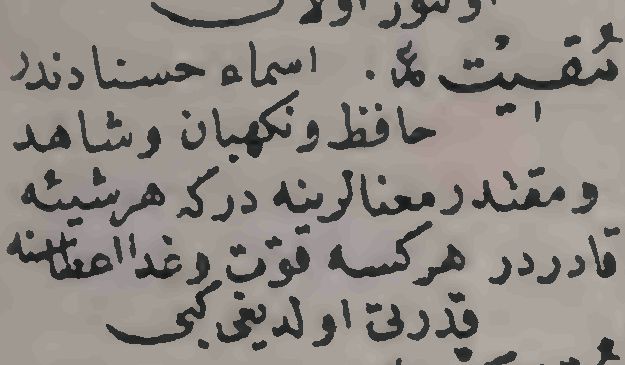 اولنور اولان
مُقيت عـ. اسماء حسنادندر
حافظ ونكهبان وشاهد
ومقتدر معنالرينه دركه هر شيئه
قادردر هر كسه قوّت وغدا اعطاسنه
قدرتى اولديغى كبى